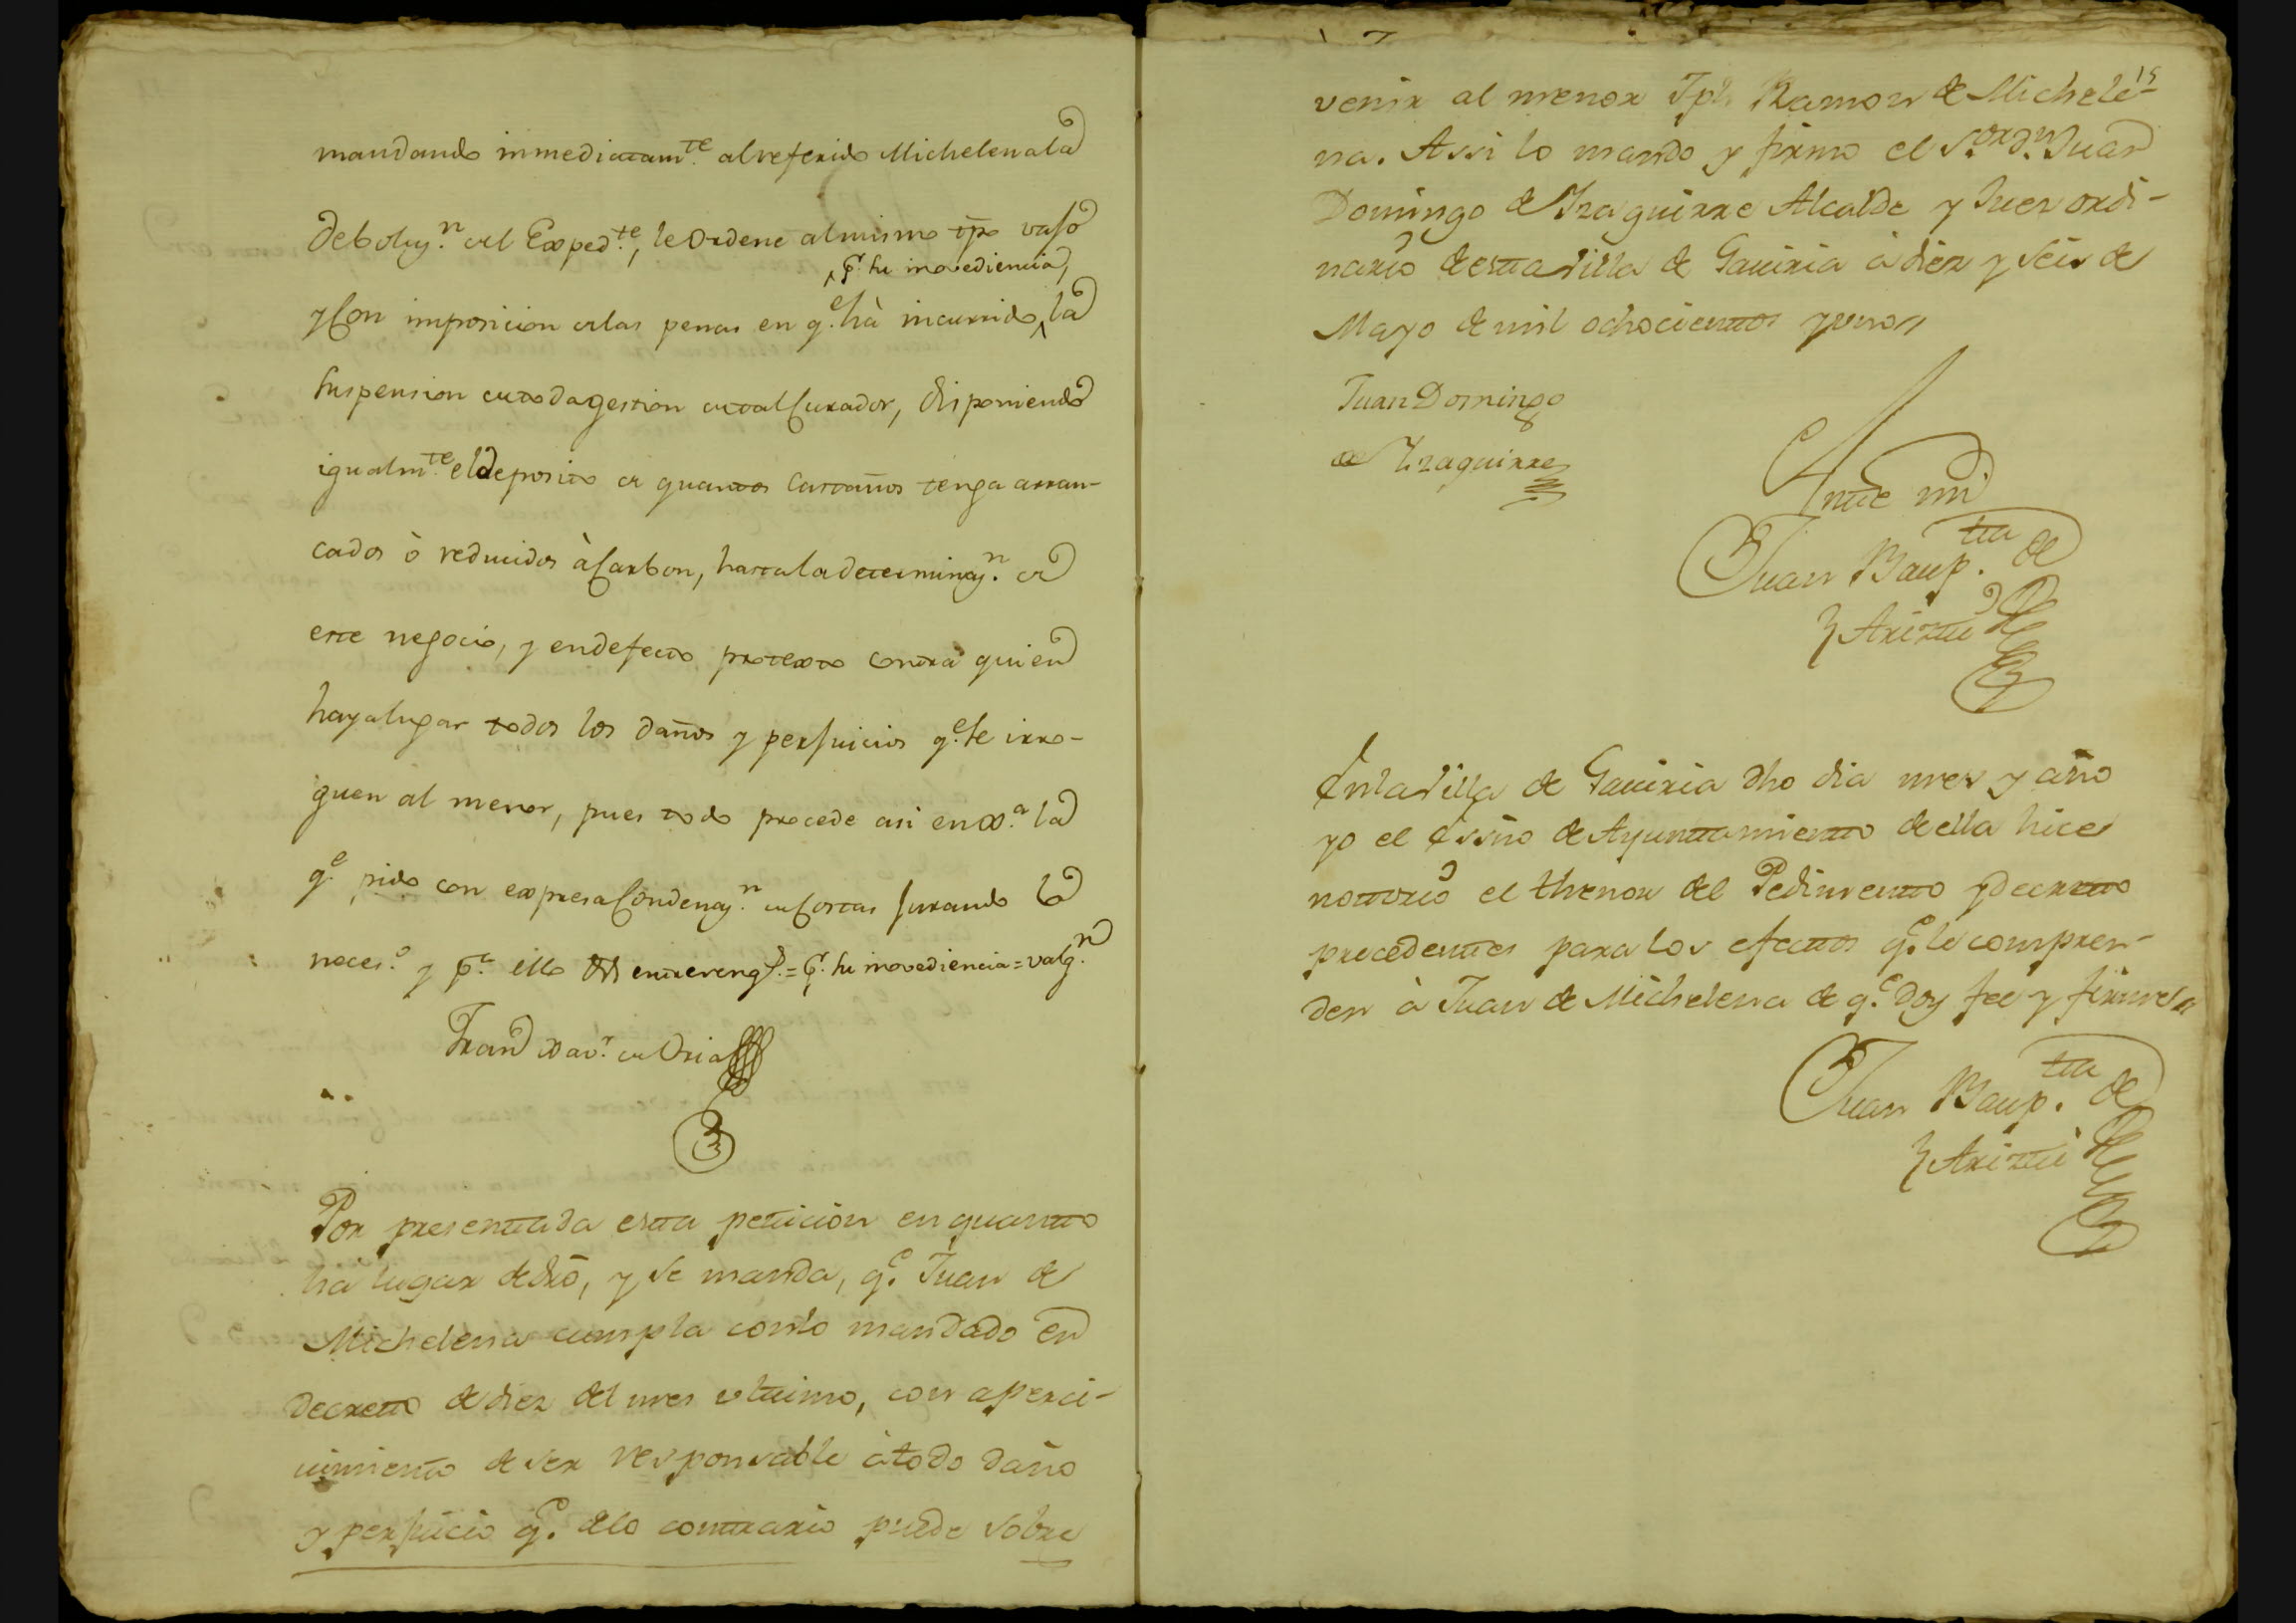 mandando inmediatamte. al referido Michelena la
deboluyn. del Expedte., le Ordene al mismo tpo vajo
pr. su inovediencia,
y Con imposicion de las penas en qe. hà incurrido la
Suspension de toda gestion de tal Curador, disponiendo
igualmte. el deposito de quantos Castaños tenga arran-
cados ò reducidos à Carbon, hasta la determinayn. de
este negocio, y en defecto protexto contra quien
haya lugar todos los daños y perjuicios qe. se irro-
guen al menor, pues todo procede asi en xa. la
qe. pido con expresa Condenayn. de Costas jurando lo
neceso. y pa. ello entrerengs. = pr. su inovediencia = valgn.
Fran Xavr. de Oria
Por presenttada estta peticion en quantto
ha lugar de dro, y se manda, qe. Juan de
Michelena cumpla con lo mandado en
decretto de diez del mes ulttimo, con aperci-
vimiento de ser responsable à todo daño
y perjuicio qe. de lo conttrario puede sobre
15
venir al menor Jph Ramon de Michele-
na. Assi lo mando y firmo el Sor. dn. Juan
Domingo de Yzaguirre Alcalde y Juez ordi-
nario de estta Villa de Gaviria à diez y seis de
Mayo de mil ochocienttos y uno
Juan Domingo
de Yzaguirre
Antte mi
Juan Baup.tta de
Ariztti
En la Villa de Gaviria dho dia mes y año
yo el Essno de Ayunttamientto de ella hice
nottorio el thenor del Pedimentto y decretto
precedenttes para los efecttos qe. le compren-
den à Juan de Michelena de qe. doy fee y firme
Juan Baup.tta de
Arizttì